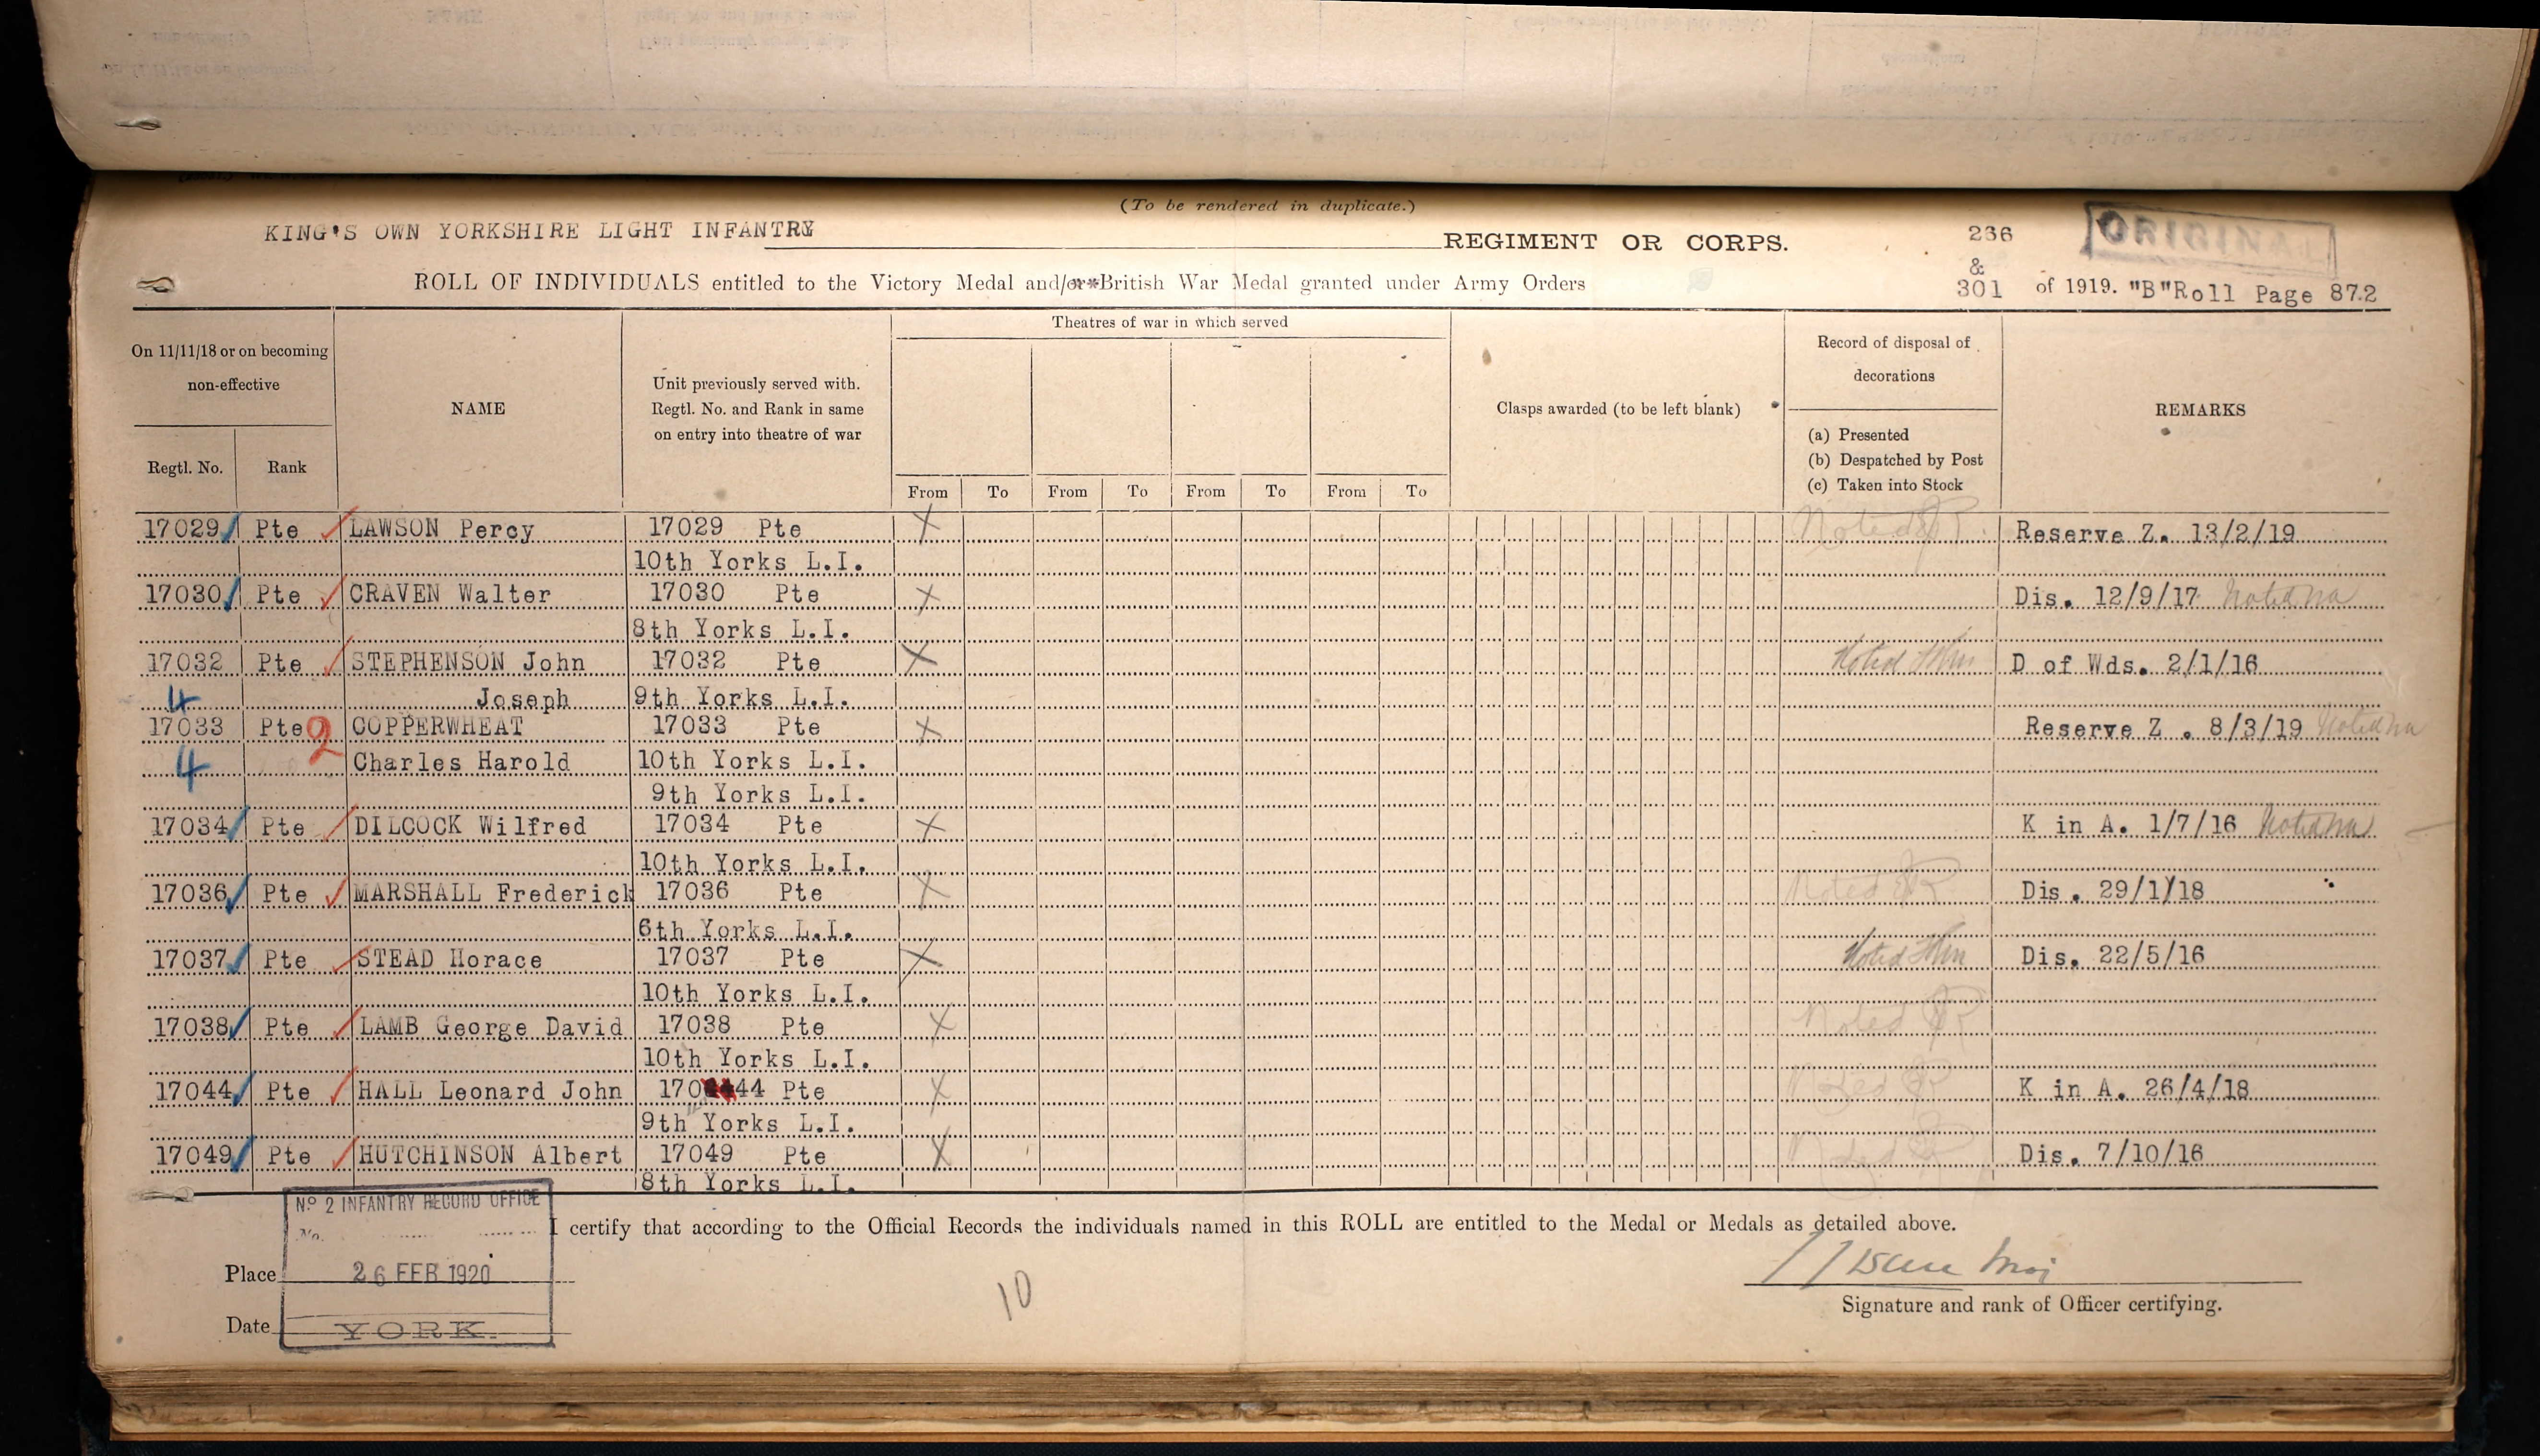 (To be rendered in duplicate.)
KING'S OWN YORKSHIRE LIGHT INFANTRY REGIMENT OR CORPS. 236 ORIGINAL
&
ROLL OF INDIVIDUALS entitled to the Victory Medal and/or British War Medal granted under Army Orders 301 of 1919. "B"Roll Page 872
Theatres of war in which served
On 11/11/18 or on becoming
non-effective
Regtl. No. Rank
NAME
Unit previously served with.
Regtl. No. and Rank in same
on entry into theatre of war
From To From To From To From To
Clasps awarded (to be left blank)
Record of disposal of
decorations
(a) Presented
(b) Despatched by Post
(c) Taken into Stock
REMARKS
17029 Pte LAWSON Percy 17029 Pte X Noted Reserve Z. 13/2/19
10th Yorks L.I.
17030 Pte CRAVEN Walter 17030 Pte X Dis. 12/9/17 Noted
8th Yorks L.I.
17032 Pte STEPHENSON John 17032 Pte X Noted D of Wds. 2/1/16
4 Joseph 9th Yorks L.I.
17033 Pte 2 COPPERWHEAT 17033 Pte X Reserve Z . 8/3/19 Noted
4 Charles Harold 10th Yorks L.I.
9th Yorks L.I.
17034 Pte DILCOCK Wilfred 17034 Pte X K in A. 1/7/16 Noted
10th Yorks L.I.
17036 Pte MARSHALL Frederick 17036 Pte X Noted Dis. 29/1/18
6th Yorks L.I.
17037 Pte STEAD Horace 17037 Pte X Noted Dis. 22/5/16
10th Yorks L.I.
17038 Pte LAMB George David 17038 Pte X Noted
10th Yorks L.I.
17044 Pte HALL Leonard John 17044 Pte X Noted K in A. 26/4/18
9th Yorks L.I.
17049 Pte HUTCHINSON Albert 17049 Pte X Noted Dis. 7/10/16
8th Yorks L.I.
No 2 INFANTRY RECORD OFFICE
No.
I certify that according to the Official Records the individuals named in this ROLL are entitled to the Medal or Medals as detailed above.
Place 26 FEB 1920
10
Signature and rank of Officer certifying.
Date YORK.